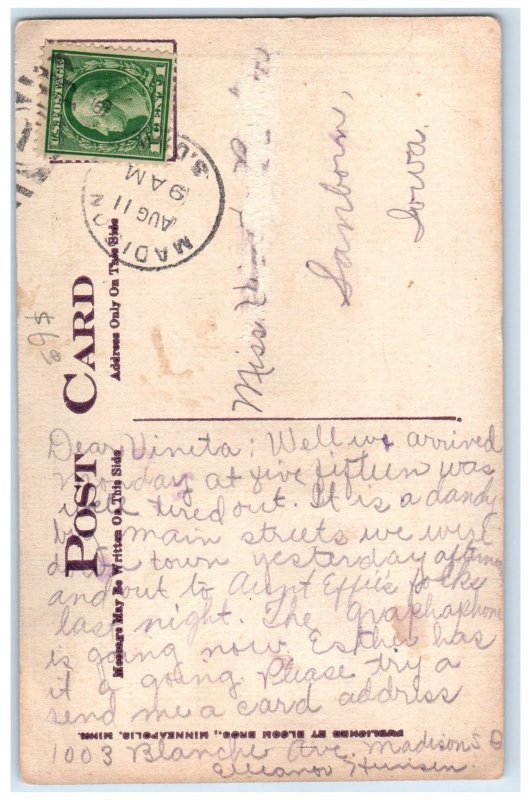 U.S. POSTAGE
1 CENT 1
MADISON
AUG 11
9 AM
S.D.
POST CARD
Message May Be Written On This Side
Address Only On This Side
69¢
Miss
Sanborn,
Iowa.
Dear Vineta: Well we arrived
Monday at five fifteen was
well tired out. It is a dandy
main streets we were
down town yesterday afternoon
and out to Aunt Effie's folks
last night. The graphaphone
is going now. Esther has
it a going. Please try a
send me a card address
1003 Blanche Ave. Madison S D
Elleanor
PUBLISHED BY BLOOM BROS., MINNEAPOLIS, MINN.